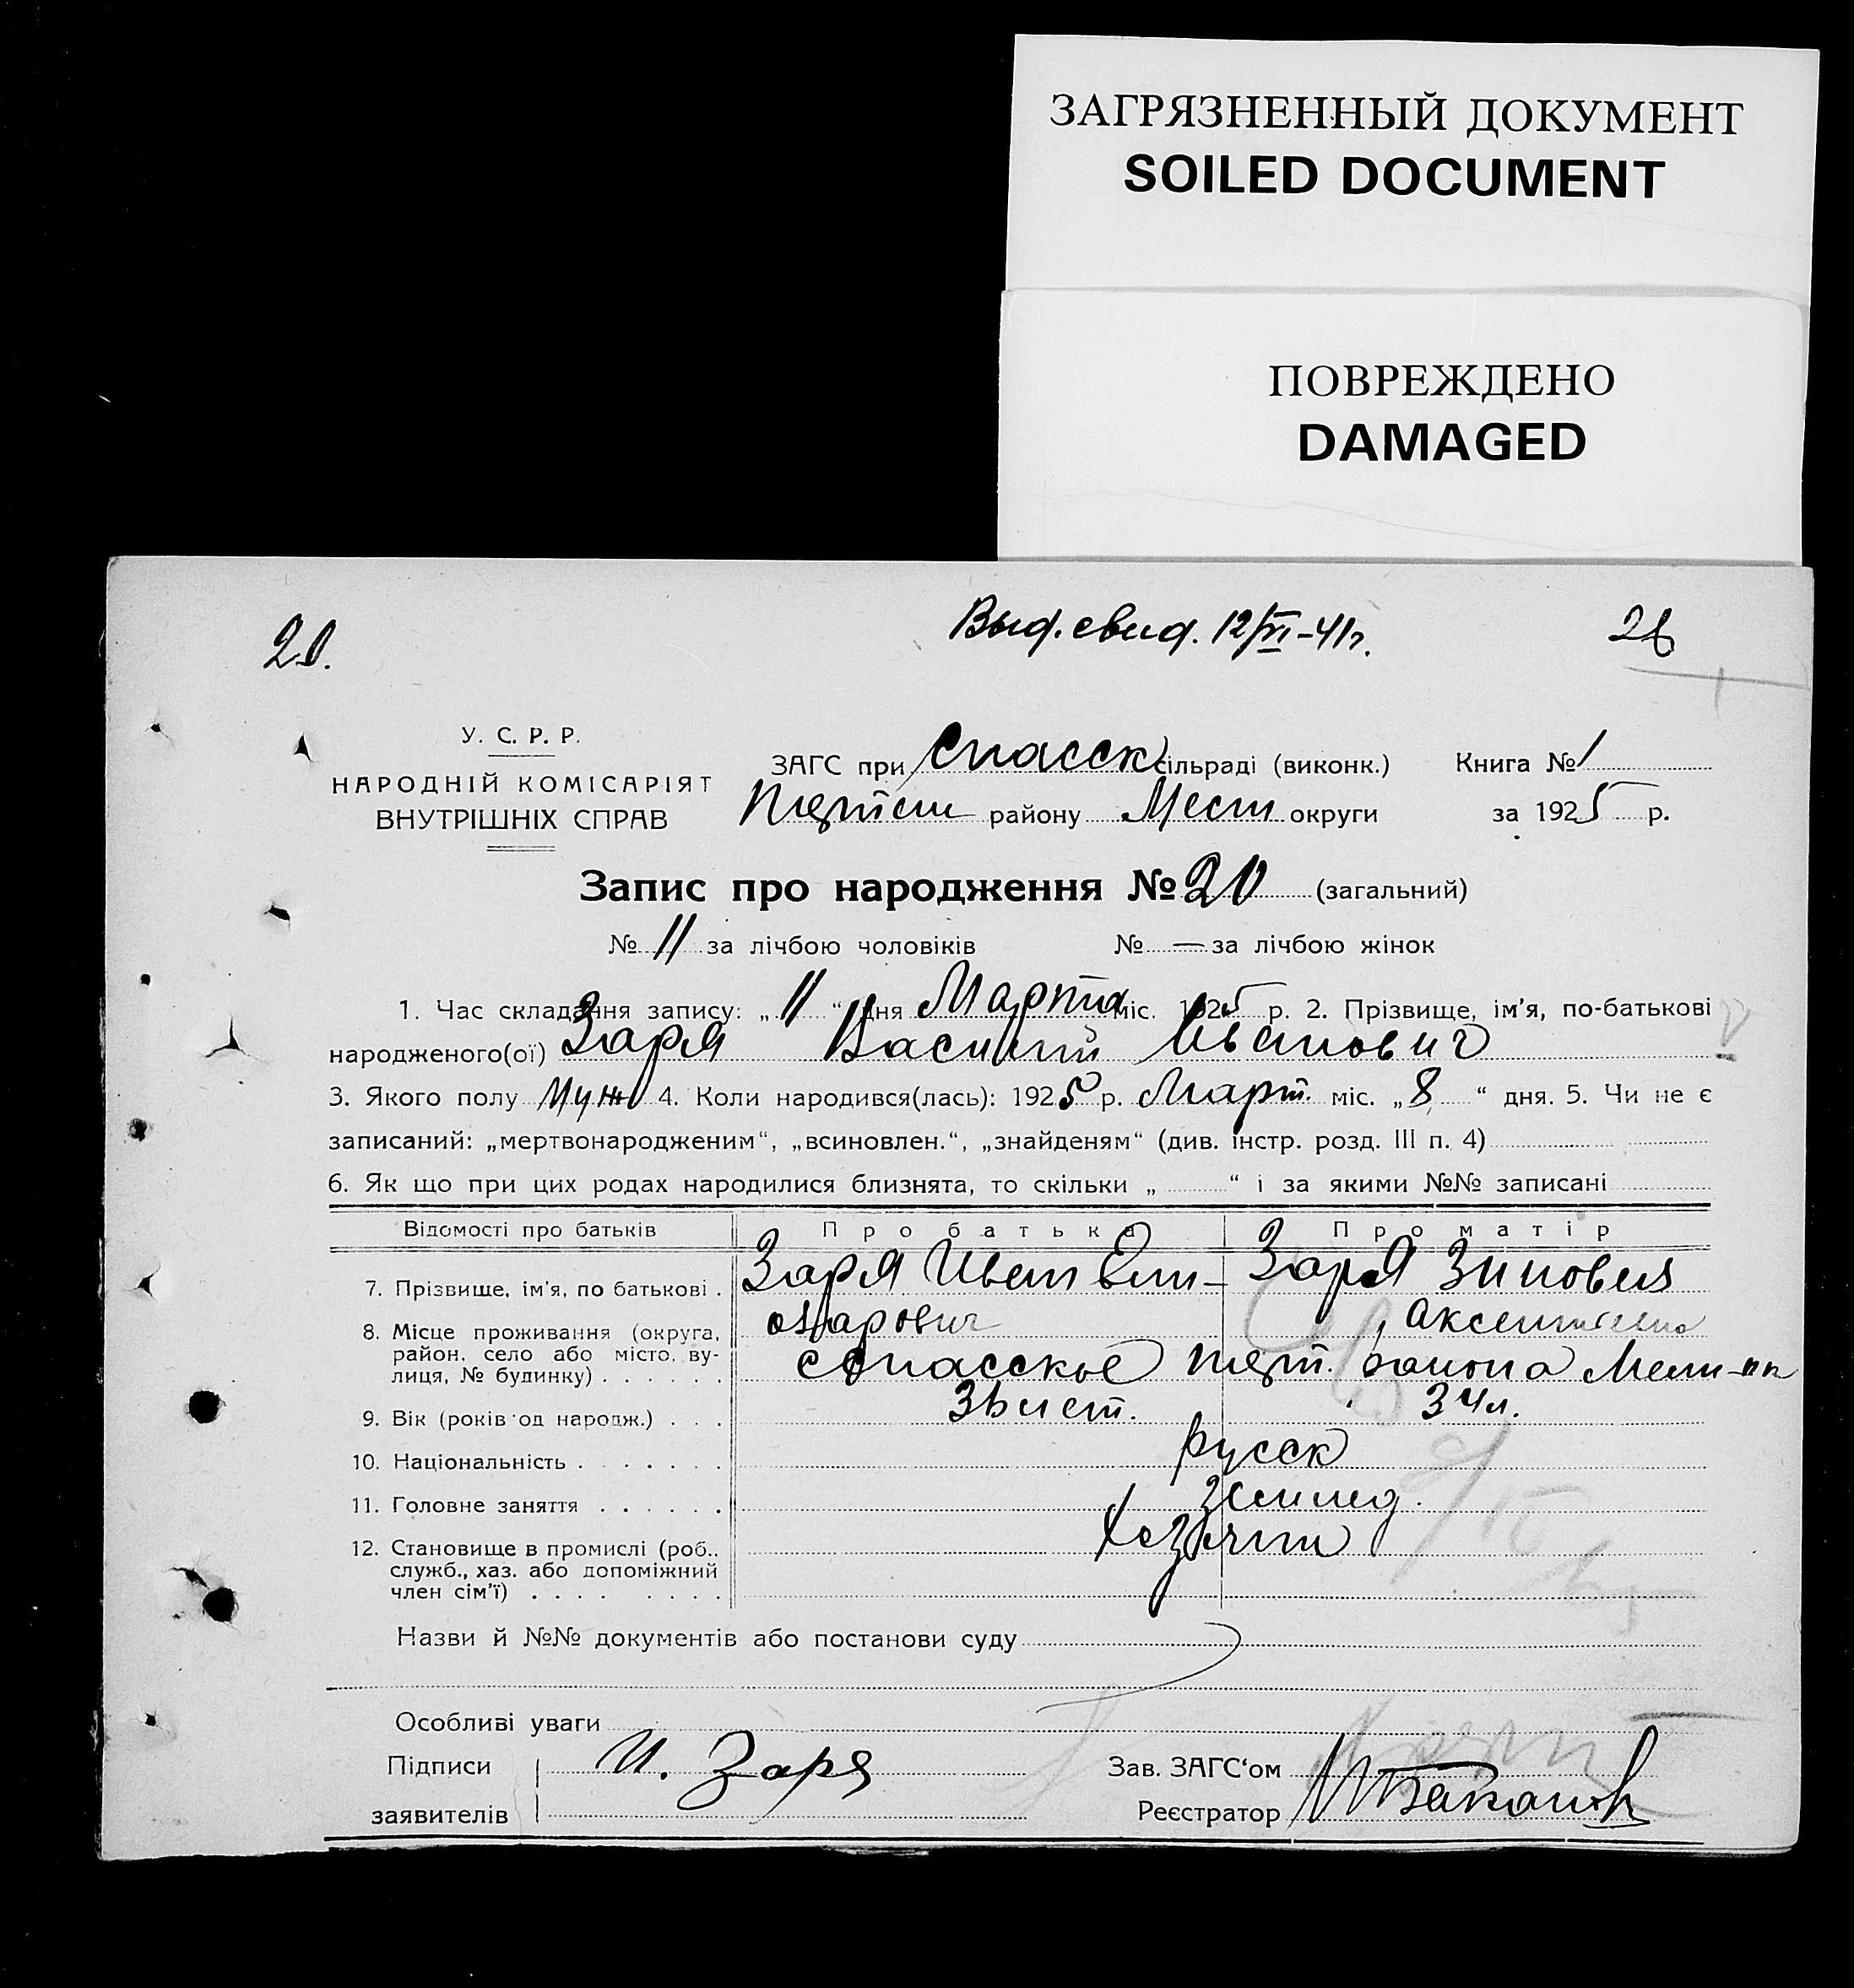 ЗАГРЯЗНЕННЫЙ ДОКУМЕНТ
SOILED DOCUMENT
ПОВРЕЖДЕНО
DAMAGED
20.
Выд. свид. 12/VI-41г.
У. С. Р. Р.
НАРОДНІЙ КОМІСАРІЯТ
ВНУТРІШНІХ СПРАВ
ЗАГС при Спасск сільраді (виконк.) Книга № 1
району Мелит округи за 1925 р.
Запис про народження № 20 (загальний)
№ 11 за лічбою чоловіків № — за лічбою жінок
1. Час складання запису: „ 11 “ дня Марта міс. 1925 р. 2. Прізвище, ім'я, по-батькові
народженого(ої) Заря Василий Иванович
3. Якого полу Муж 4. Коли народився(лась): 1925 р. Март. міс. „ 8 “ дня. 5. Чи не є
записаний: „мертвонародженим“, „всиновлен.“, „знайденям“ (див. інстр. розд. III п. 4)
6. Як що при цих родах народилися близнята, то скільки „ “ і за якими №№ записані
Відомості про батьків Про батька Про матір
7. Прізвище, ім'я, по батькові . Заря Иван Заря Зиновия
8. Місце проживання (округа,
район, село або місто, ву-
лиця, № будинку) . . . . . . района
9. Вік (років од народж.) . . . 34 л.
10. Національність . . . . . . . русск
11. Головне заняття . . . . . . землед.
12. Становище в промислі (роб.,
служб., хаз. або допоміжний
член сім'ї) . . . . . . . .
Назви й №№ документів або постанови суду
Особливі уваги
Підписи И. Заря Зав. ЗАГС'ом
заявителів Реєстратор